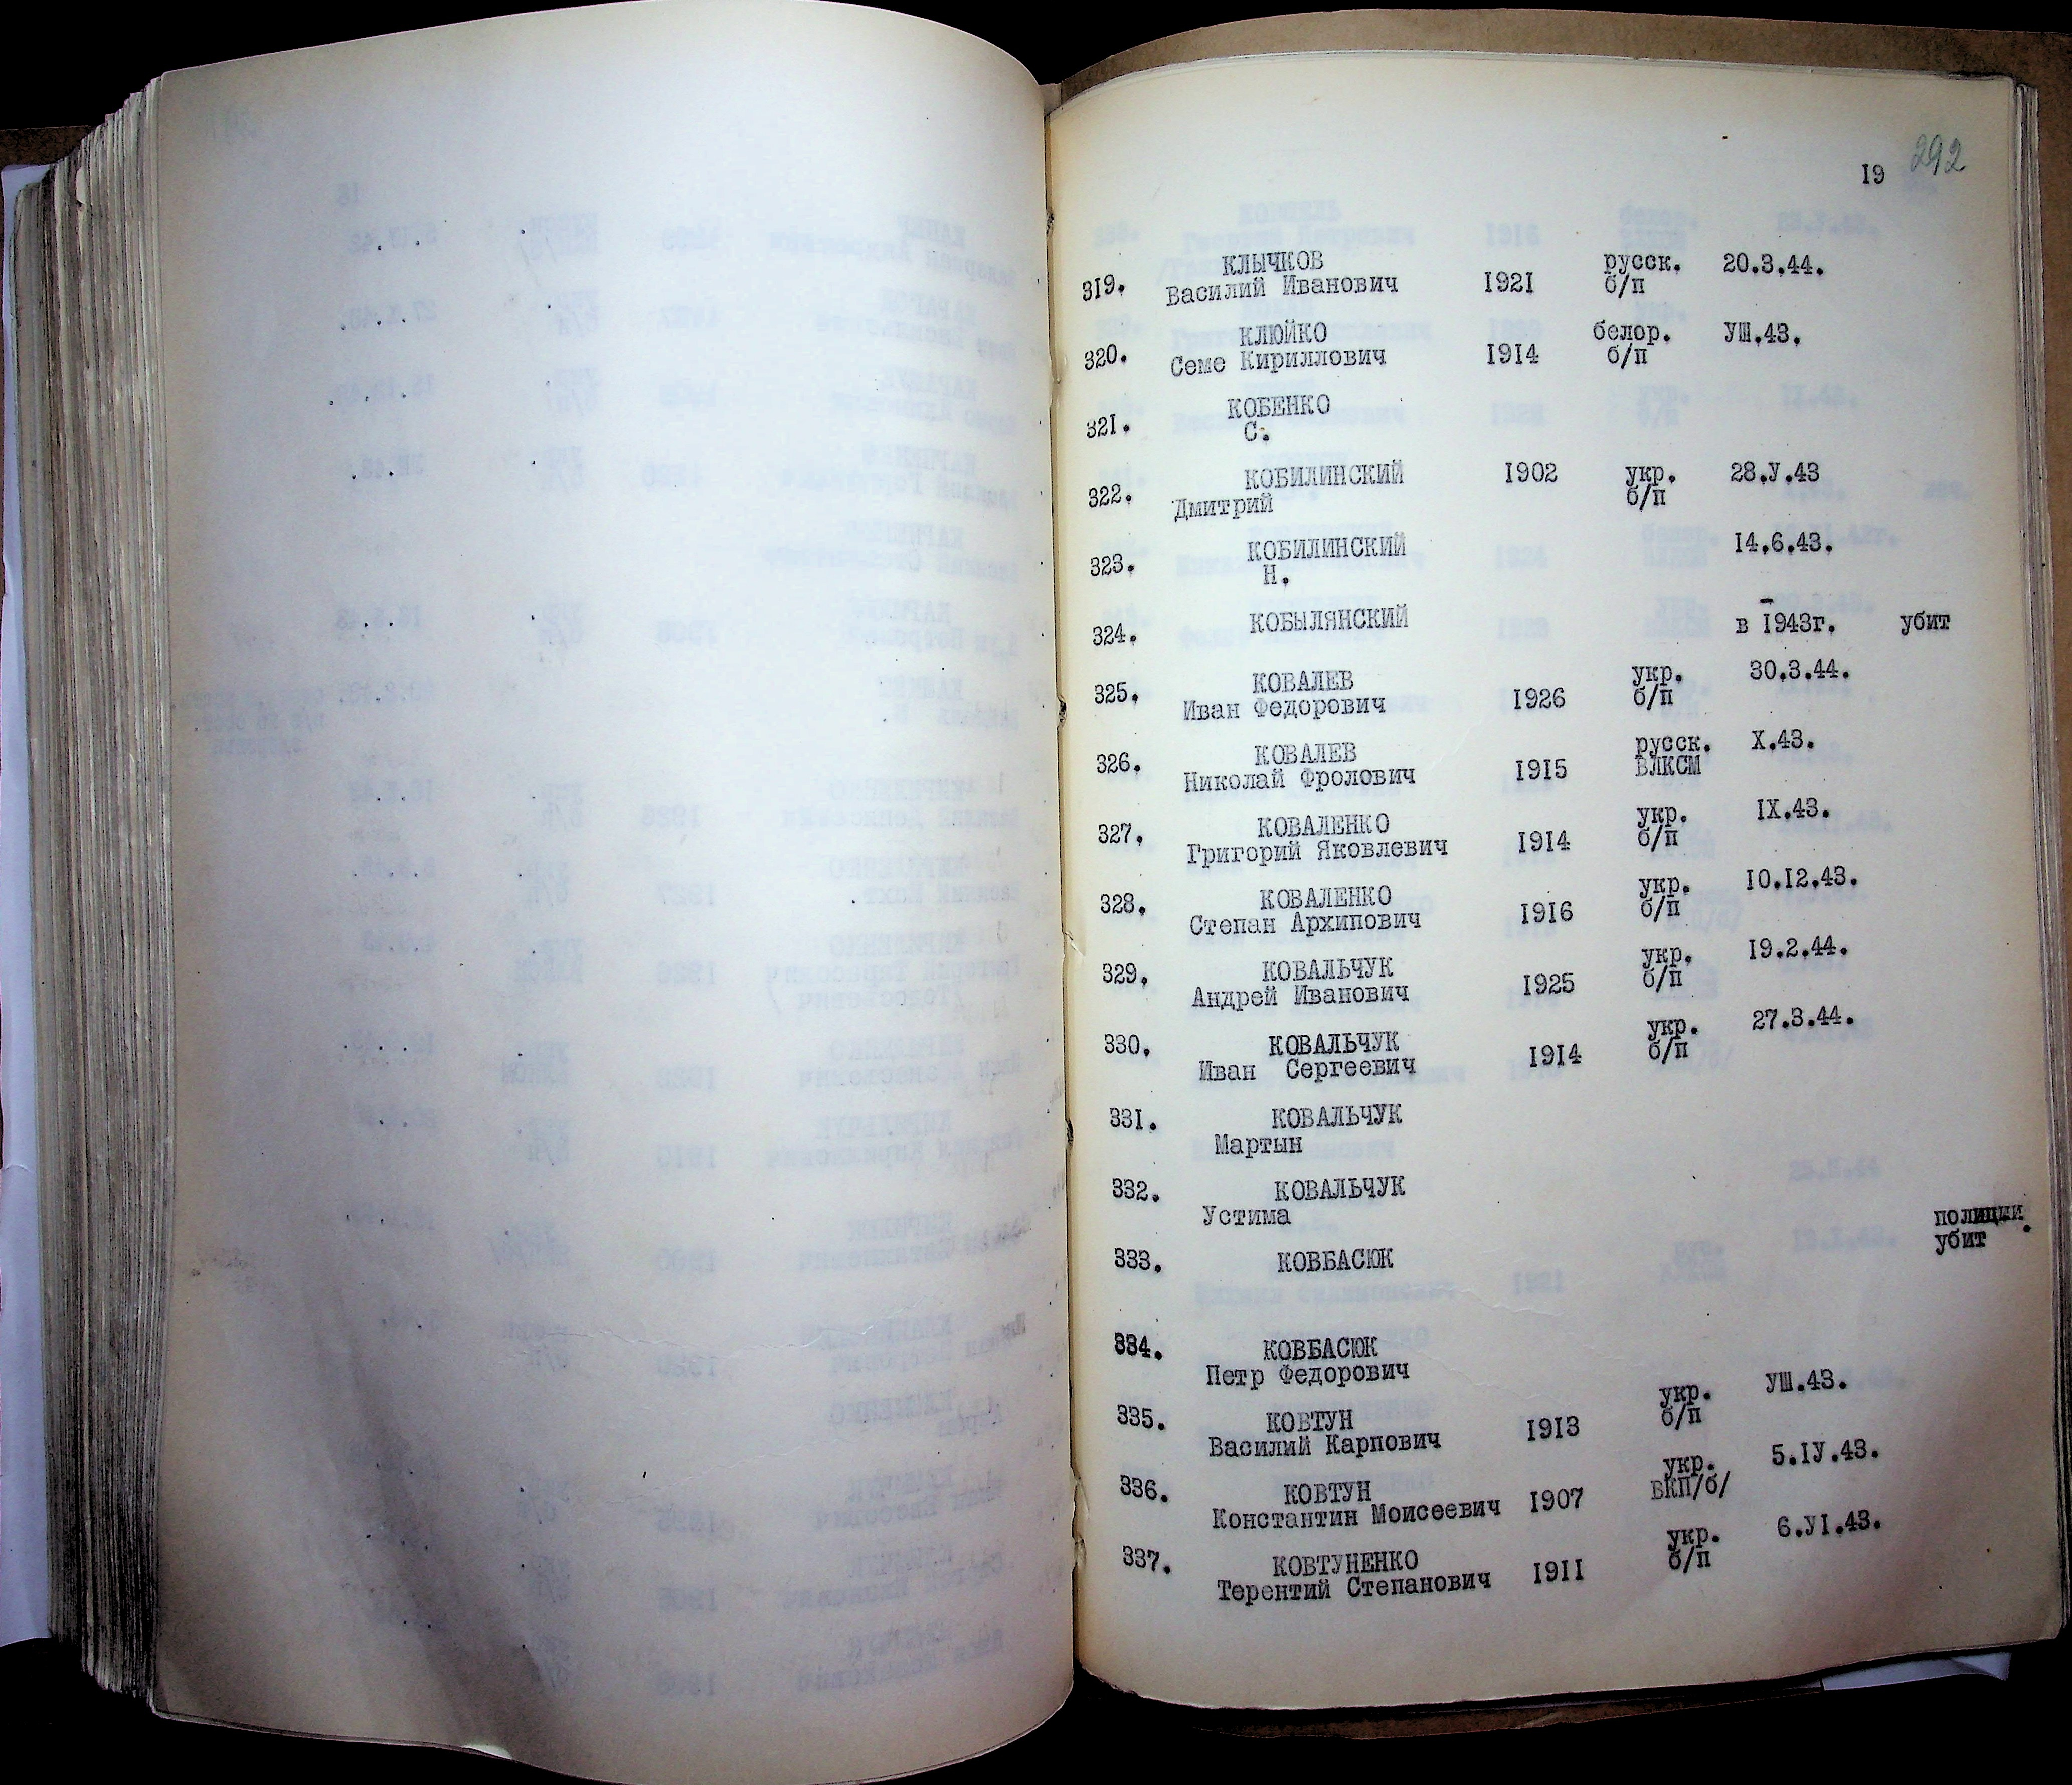 19 292
319. КЛЫЧКОВ русск. 20.3.44.
Василий Иванович 1921 б/п
320. КЛЮЙКО белор. УШ.43.
Семе Кириллович 1914 б/п
321. КОБЕНКО
С.
322. КОБИЛИНСКИЙ 1902 укр. 28.У.43
Дмитрий б/п
323. КОБИЛИНСКИЙ 14.6.43.
Н.
324. КОБЫЛЯНСКИЙ в 1943г. убит
325. КОВАЛЕВ укр. 30.3.44.
Иван Федорович 1926 б/п
326. КОВАЛЕВ русск. Х.43.
Николай Фролович 1915 ВЛКСМ
327. КОВАЛЕНКО укр. IX.43.
Григорий Яковлевич 1914 б/п
328. КОВАЛЕНКО укр. 10.12.43.
Степан Архипович 1916 б/п
329. КОВАЛЬЧУК укр. 19.2.44.
Андрей Иванович 1925 б/п
330. КОВАЛЬЧУК укр. 27.3.44.
Иван Сергеевич 1914 б/п
331. КОВАЛЬЧУК
Мартын
332. КОВАЛЬЧУК
Устима
333. КОВБАСЮК полиции.
убит
334. КОВБАСЮК
Петр Федорович
335. КОВТУН укр. УШ.43.
Василий Карпович 1913 б/п
336. КОВТУН укр. 5.IУ.43.
Константин Моисеевич 1907 ВКП/б/
337. КОВТУНЕНКО укр. 6.УI.43.
Терентий Степанович 1911 б/п